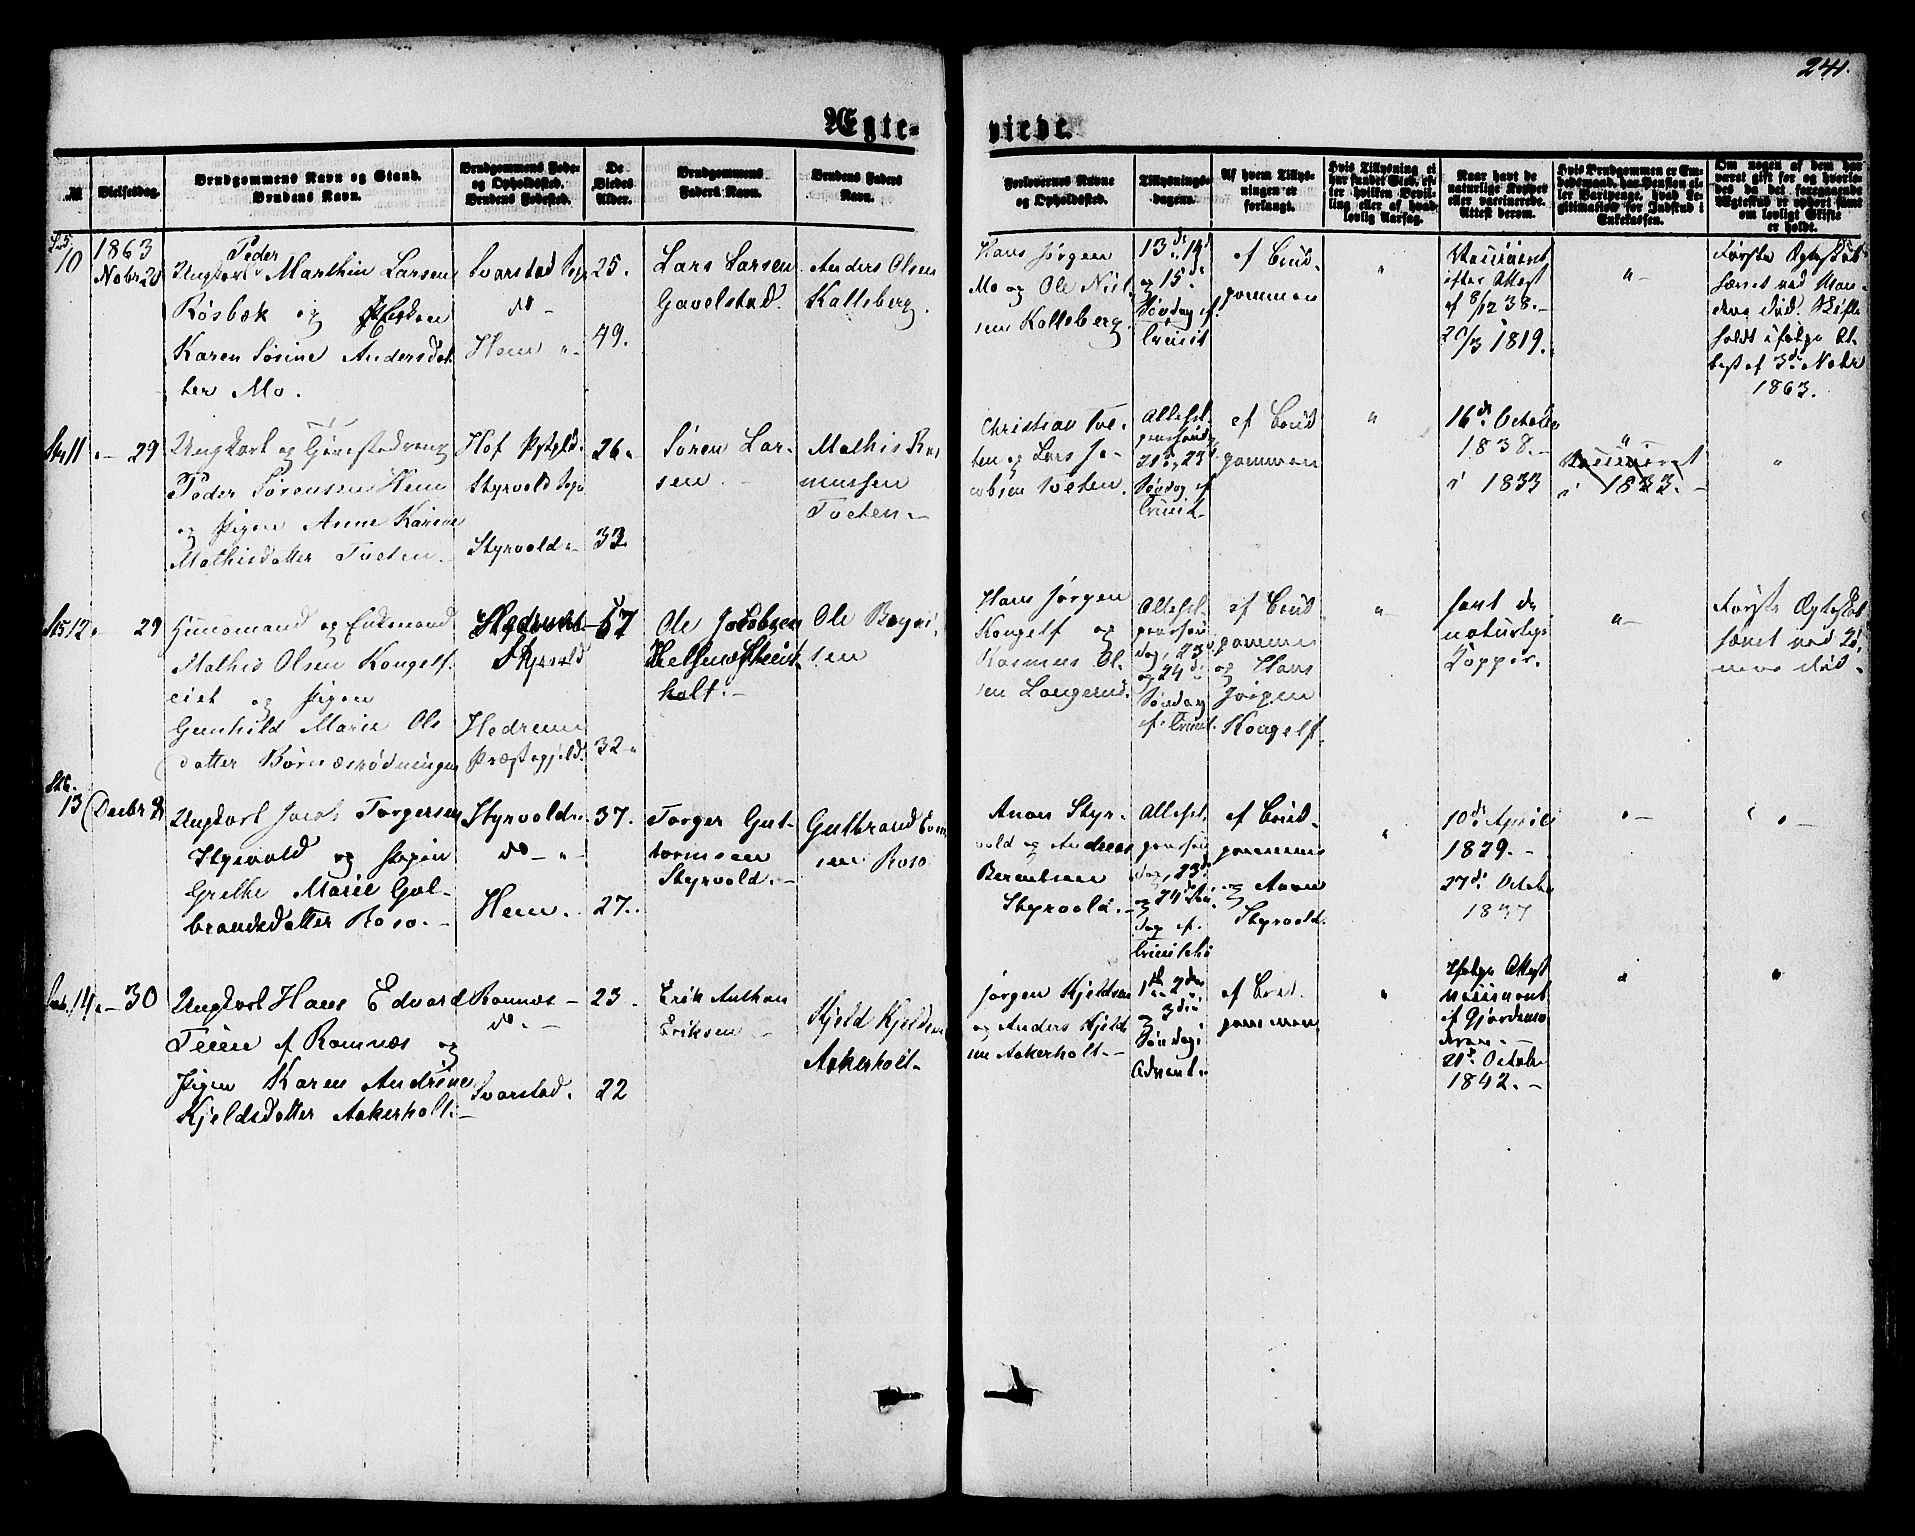 241.
Ægte-
viede.
No
Vielsesdag.
Brudgommens Navn og Stand.
Brudens Navn.
Brudgommens Føde-
og Opholdssted.
Brudens Fødested.
De
Viedes
Alder.
Brudgommens
Faders Navn.
Brudens Faders
Navn.
Forlovernes Navne
og Opholdssted.
Tillysnings-
dagene.
Af hvem Tillys-
ningen er
forlangt.
Hvis Tillysning ei
har fundet Sted, ef-
ter hvilken Bevil-
ling eller af hvad
lovlig Aarsag.
Naar havt de
naturlige Kopper
eller vaccinerede.
Attest derom.
Hvis Brudgommen er Em-
bedsmand, har Pension el-
ler Vartpenge, hvad Le-
gitimation for Indskud i
Enkekassen.
Om nogen af dem har
været gift før og hvorle-
des da det foregaaende
Ægteskab er ophørt samt
om lovligt Skifte
er holdt.
10
1863
Nobr 20
Peder
Ungkarl Marthin Larsen
Røsbæk og
Karen Sørine Andersdat
ter Mo.
Svarstad Sogn
do -
Hem "
25.
49.
Lars Larsen
Gavelstad.
Anders Olsen
Kalleberg.
Hans Jørgen
Mo og Ole Niel
sen Kalleberg.
13de 14de
og 15de
Søndag ef.
Trinit
af Brud-
gommen
"
Vaccineret
efter Attest
af 8/12 38. -
20/3 1819.
" -
Første Ægteskab
hævet ved Man-
dens Død. Skifte
holdt ifølge At-
test af 3de Nobr
1863.
11
" - 29
Ungkarl og Gaardsdreng
Peder Sørensen Hem
og Pigen Anne Karine
Mathisdatter Tveten.
Hof Pstgld.
Styrvold Sogn
Styrvold "
26 "
33
Søren Lar-
sen. -
Mathis Ras
mussen
Tveten. -
Christian Tve-
ten og Lars Ja-
cobsen Tveten.
Allehel-
gensønd
21de, 23de
Søndag ef
Trinit. -
af Brud
gommen
"
16de October
1838. -
i 1833
"
Vaccineret
i 1833. -
"
12
" - 29
Gaardmand og Enkemand
Mathis Olsen Kongelf
eiet og Pigen
Gunhild Marie Ols
datter Børnesrødningen
Styrvold
Hedrum
Præstegjeld.
57
32 "
Ole Jacobsen
holt. -
Ole Bagni
sen
Hans Jørgen
Kongelf og
Rasmus Ol
sen Langerud.
Allehel-
genssøn
dag, 23de
og 24de
Søndag
ef. Trinit.
af Brud
gommen
og Hans
Jørgen
Kongelf.
" -
havt de
naturlige
Kopper.
" -
Første Ægteskab
hævet ved Ko-
nens Død. -
13
Decbr
Ungkarl Jacob Torgersen
Styrvold og Pigen
Grethe Marie Gul-
brandsdatter Roso. -
Styrvold "
do - " -
Hem.
37.
27.
Torger Gut-
tormsen
Styrvold. -
Gulbrand
sen Roso
Anon Styr-
vold og Andreas
Berentsen
Styrvold. -
Allehel-
genssøn
dag, 23de
og 24de Søn-
dag ef.
Trinitatis
af Brud-
gommens
og Anon
Styrvold.
"
10de April
1829. -
27de October
1837
" -
" -
14
" - 30
Ungkarl Hans Edvard
Teien af Ramnæs og
Pigen Karen Andrine
Kjeldsdatter Aakerholt. -
Ramnæs -
do. -
Svarstad.
23.
22
Erik Anthon
Eriksen -
Kjeld Kjeldsen
Aakerholt.
Jørgen Kjeldsen
og Anders Kjeld
sen Aakerholt. -
1ste 2den
3die
Søndag i
Advent.
af Brud-
gommen
"
Ifølge Attest
vaccineret
af Gjordemo
deren. -
21de October
1842. -
"
"